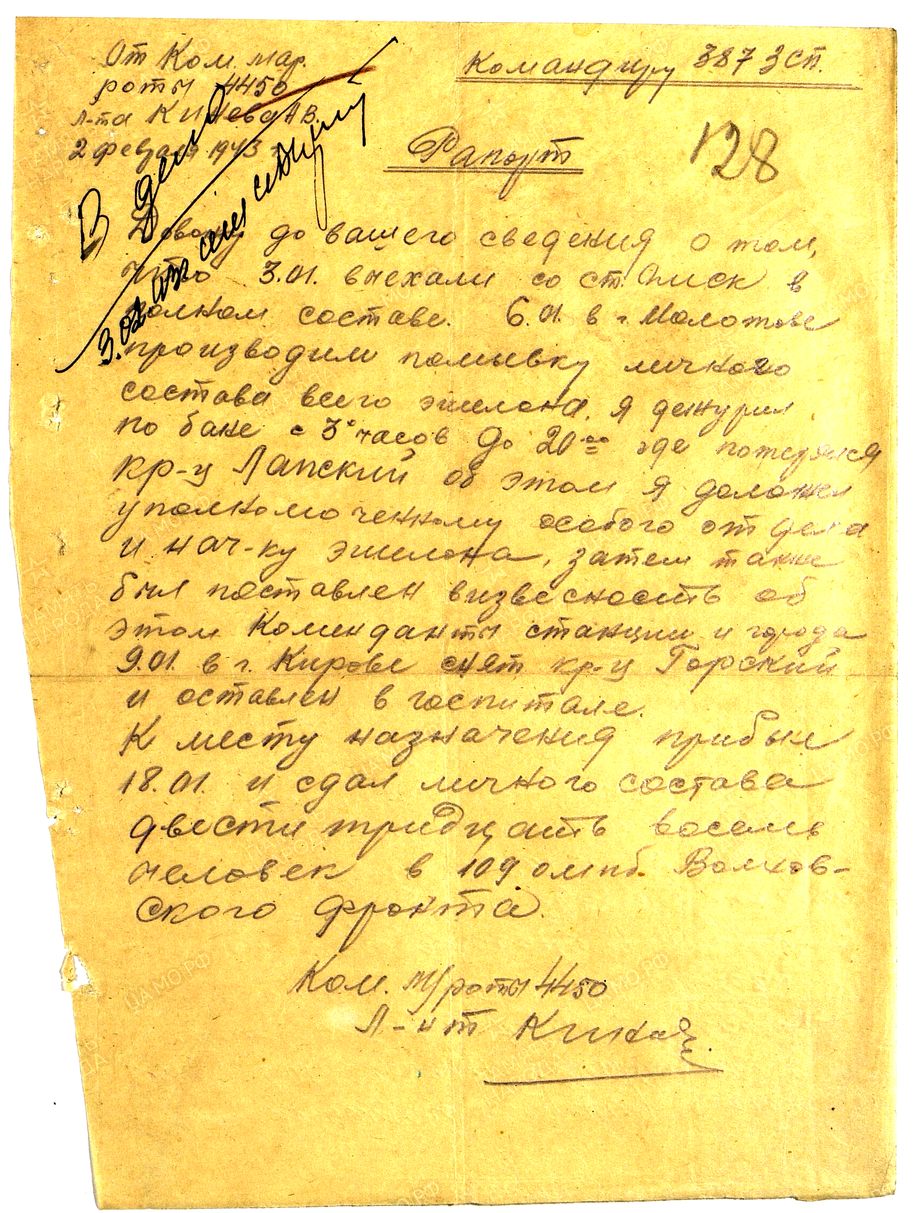 От Ком. мар.
роты 4450
л-та Кинева А В.
2 февраля 1943 г
Командиру 387 ЗСП.
Рапорт
128
В дело
3.02
Довожу до вашего сведения о том,
что 3.01. выехали со ст. в
полном составе. 6.01. в г. Молотове
производили помывку личного
состава всего эшелона. я дежурил
по бане с 3 часов до 20 00 где потерялся
кр-ц Лапский об этом я доложил
уполкомоченному особого отдела
и нач-ку эшелона, затем также
был поставлен визвесность об
этом Коменданты станции и города
9.01. в г. Кирове снят кр-ц Горский
и оставлен в госпитале.
К месту назначения прибыл
18.01. и сдал личного состава
двести тридцать восемь
человек в 109 омпб. Волхов-
ского фронта.
Ком. м/роты 4450
Л-нт